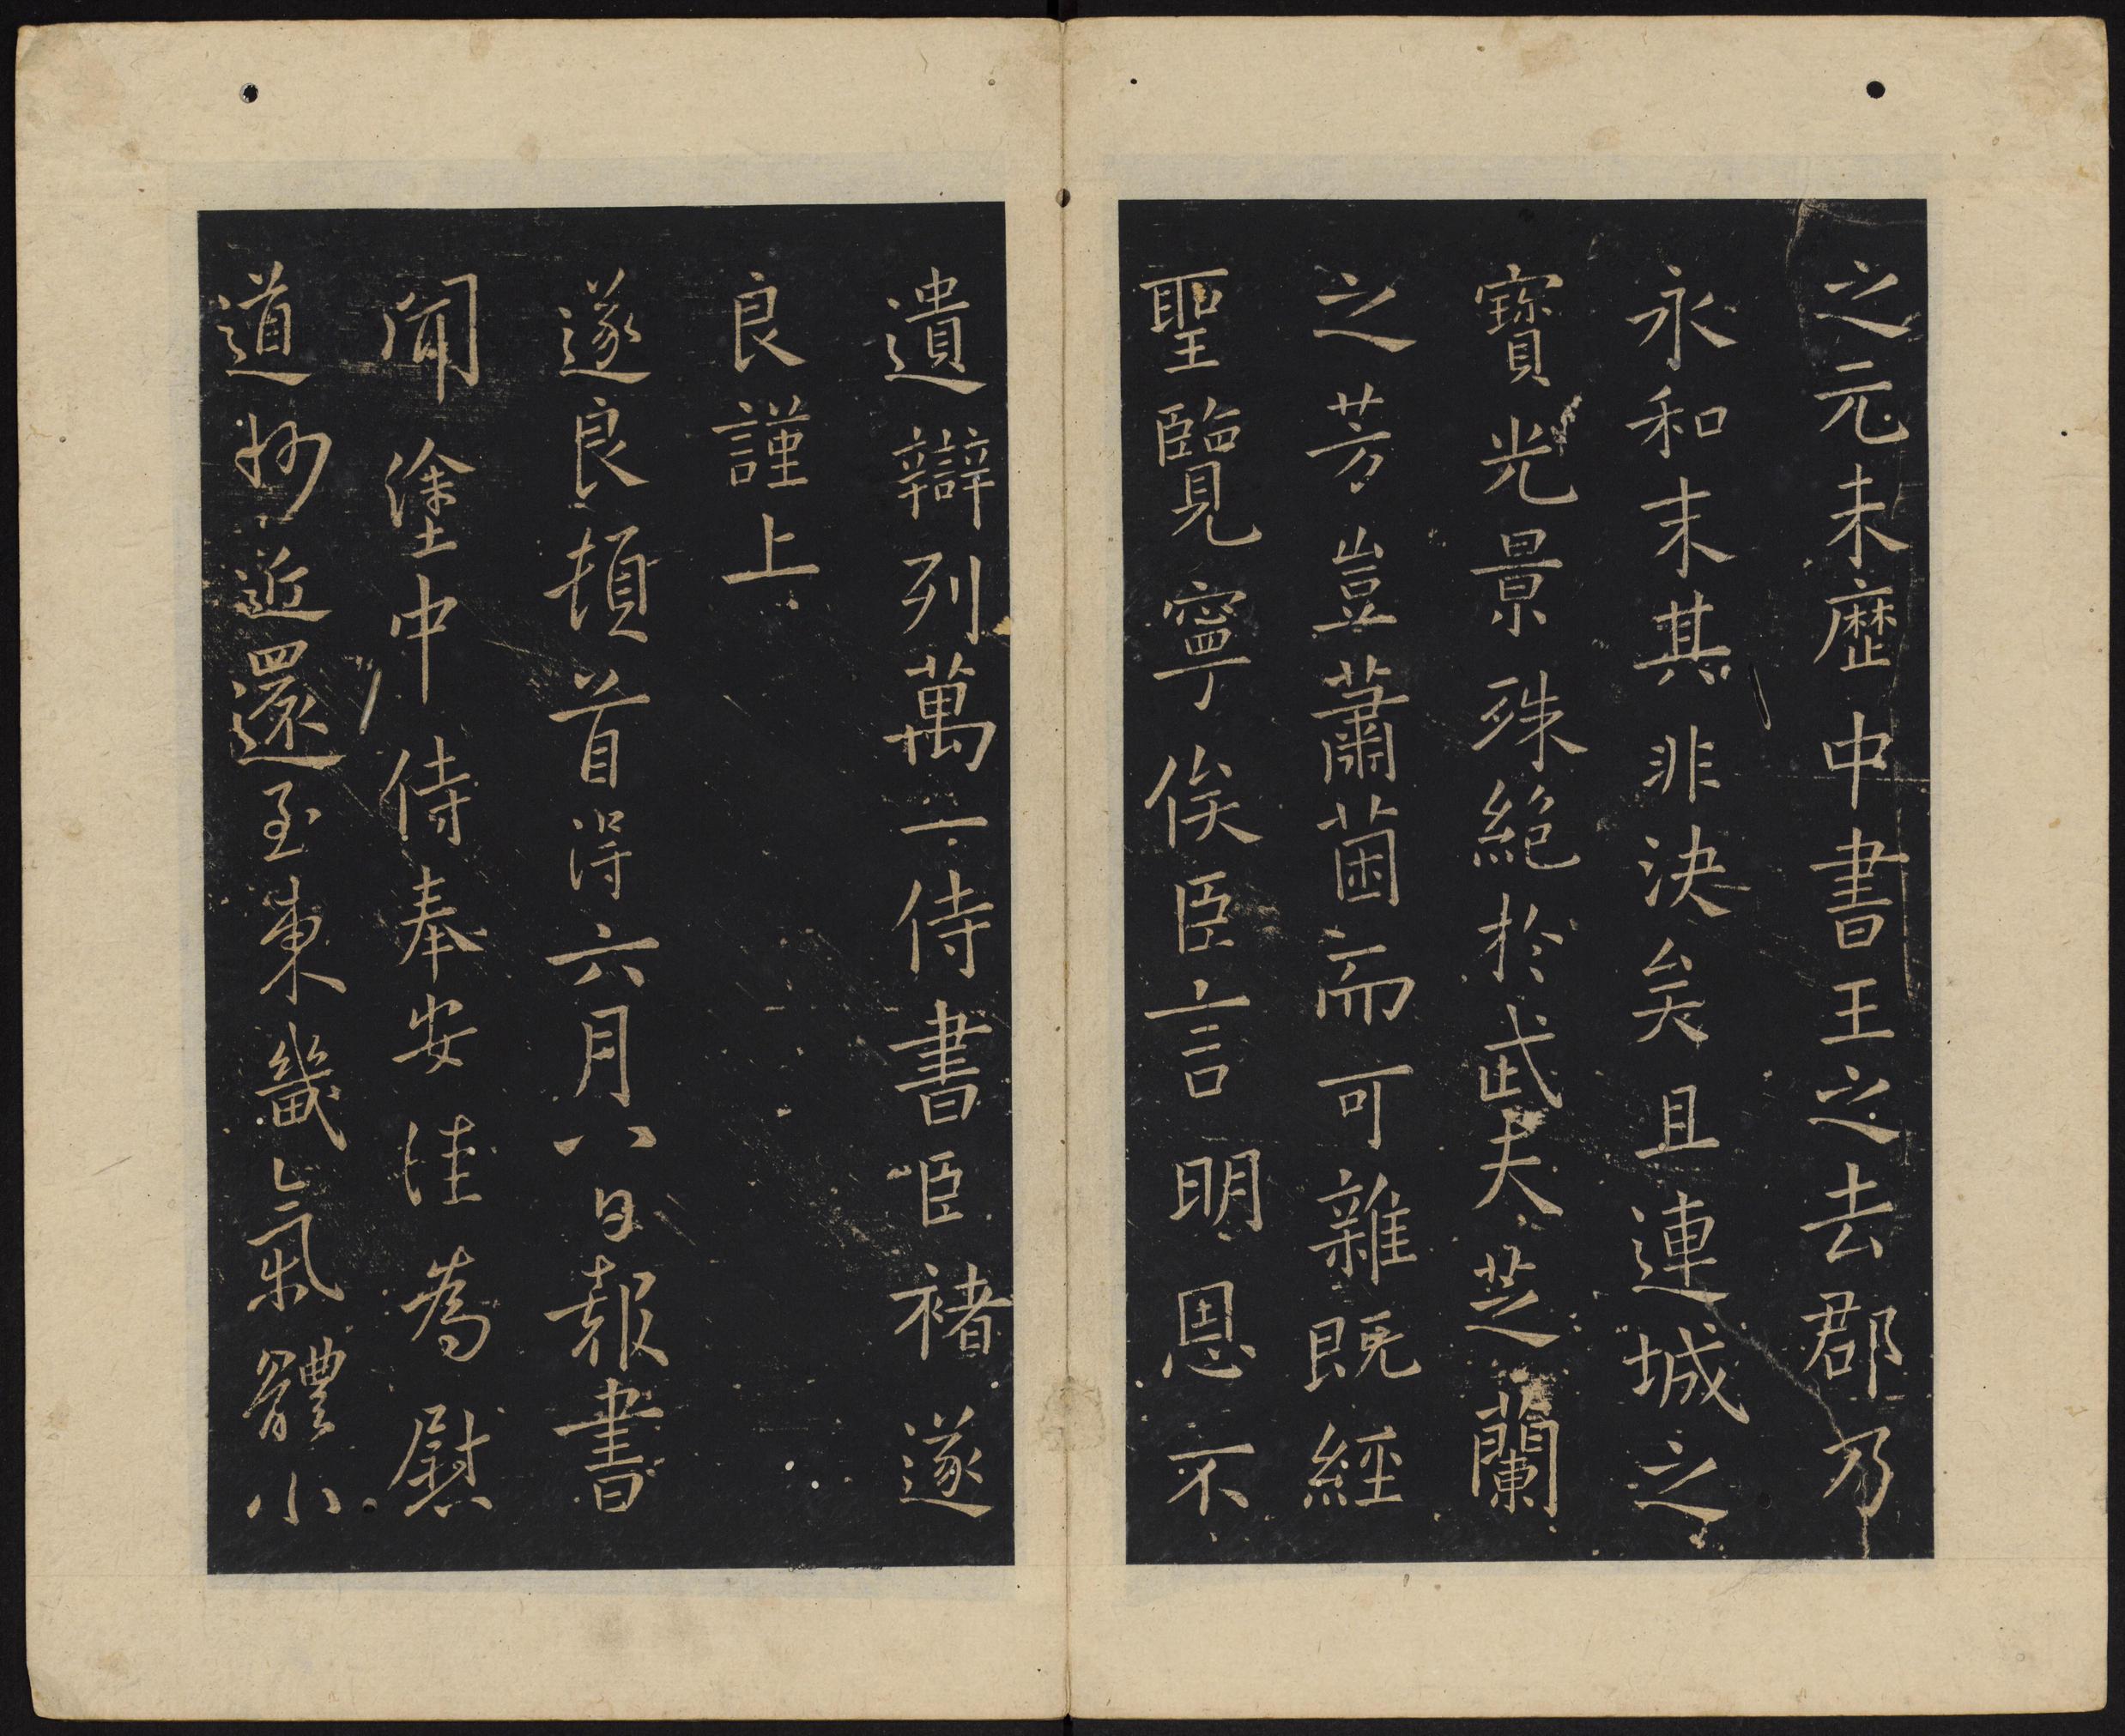 之元未歷中書王之去郡乃
永和末其非決矣且連城之
寶光景殊絕於武夫芝蘭
之芳豈蕭茵而可雜既經
聖覽寧俟臣言明恩不
遺辯列萬一侍書臣褚遂
良謹上
遂良頓首得六月八日報書
聞塗中侍奉安佳為慰
道妙近還至東畿氣體小